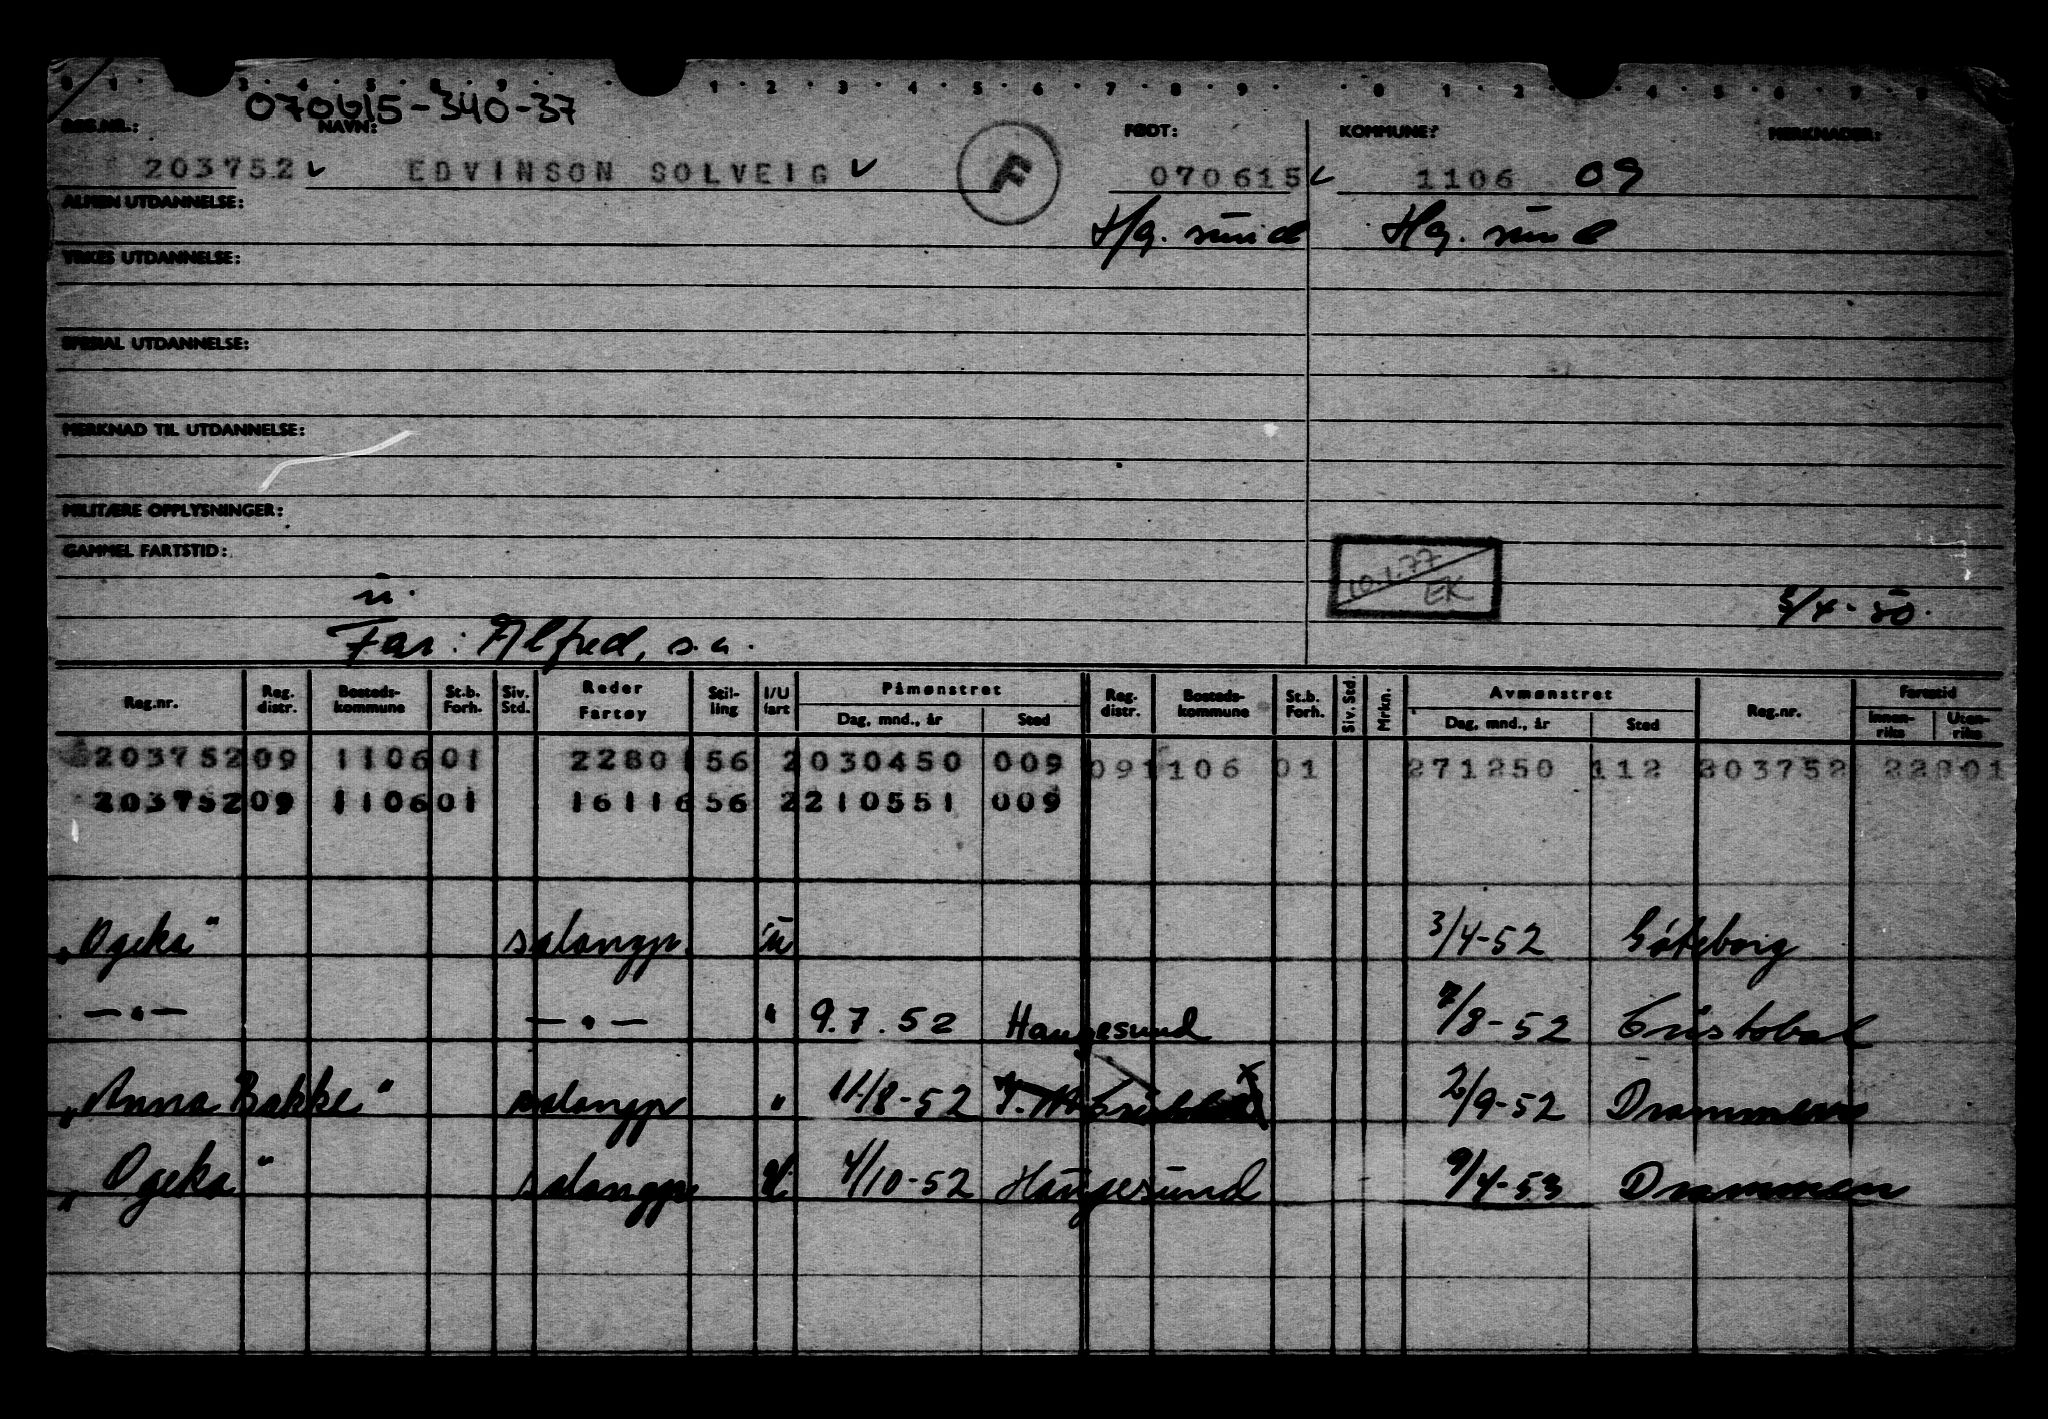 0 1 3 4 5 8 9 1 2 3 4 5 6 7 8 9 0 1 2 4 5 6 7 8
070615-340-37
REG.NR.: NAVN: FØDT: KOMMUNE: MERKNADER:
203752 ✓ EDVINSON SOLVEIG ✓ F 070615 ✓ 1106 09
ALMEN UTDANNELSE: Hg. sund Hg. sund
YRKES UTDANNELSE:
SPESIAL UTDANNELSE:
MERKNAD TIL UTDANNELSE:
MILITÆRE OPPLYSNINGER:
GAMMEL FARTSTID:
10.1.77 EK
u. 3/4-50.
Far: Alfred, s.a.
Reg.nr. Reg. distr. Bosteds-kommune St.b. Forh. Siv. Std. Reder Fartøy Stil-ling I/U fart Påmønstret Dag, mnd., år Sted Reg. distr. Bosteds-kommune St.b. Forh. Siv. Std. Mrkn. Avmønstret Dag, mnd., år Sted Reg.nr. Fartstid Innen-riks Uten-riks
203752 09 1106 01 22801 56 2 030450 009 09 1106 01 271250 112 203752 22801
203752 09 1106 01 16116 56 2 210551 009
„Ogeka" salongp. u 3/4-52 Göteborg
— " — — " — " 9.7.52 Haugesund 7/8-52 Cristobal
„Anna Bakke" salongp " 11/8-52 Cristobal x 2/9-52 Drammen
„Ogeka" salongp U. 4/10-52 Haugesund 9/4-53 Drammen